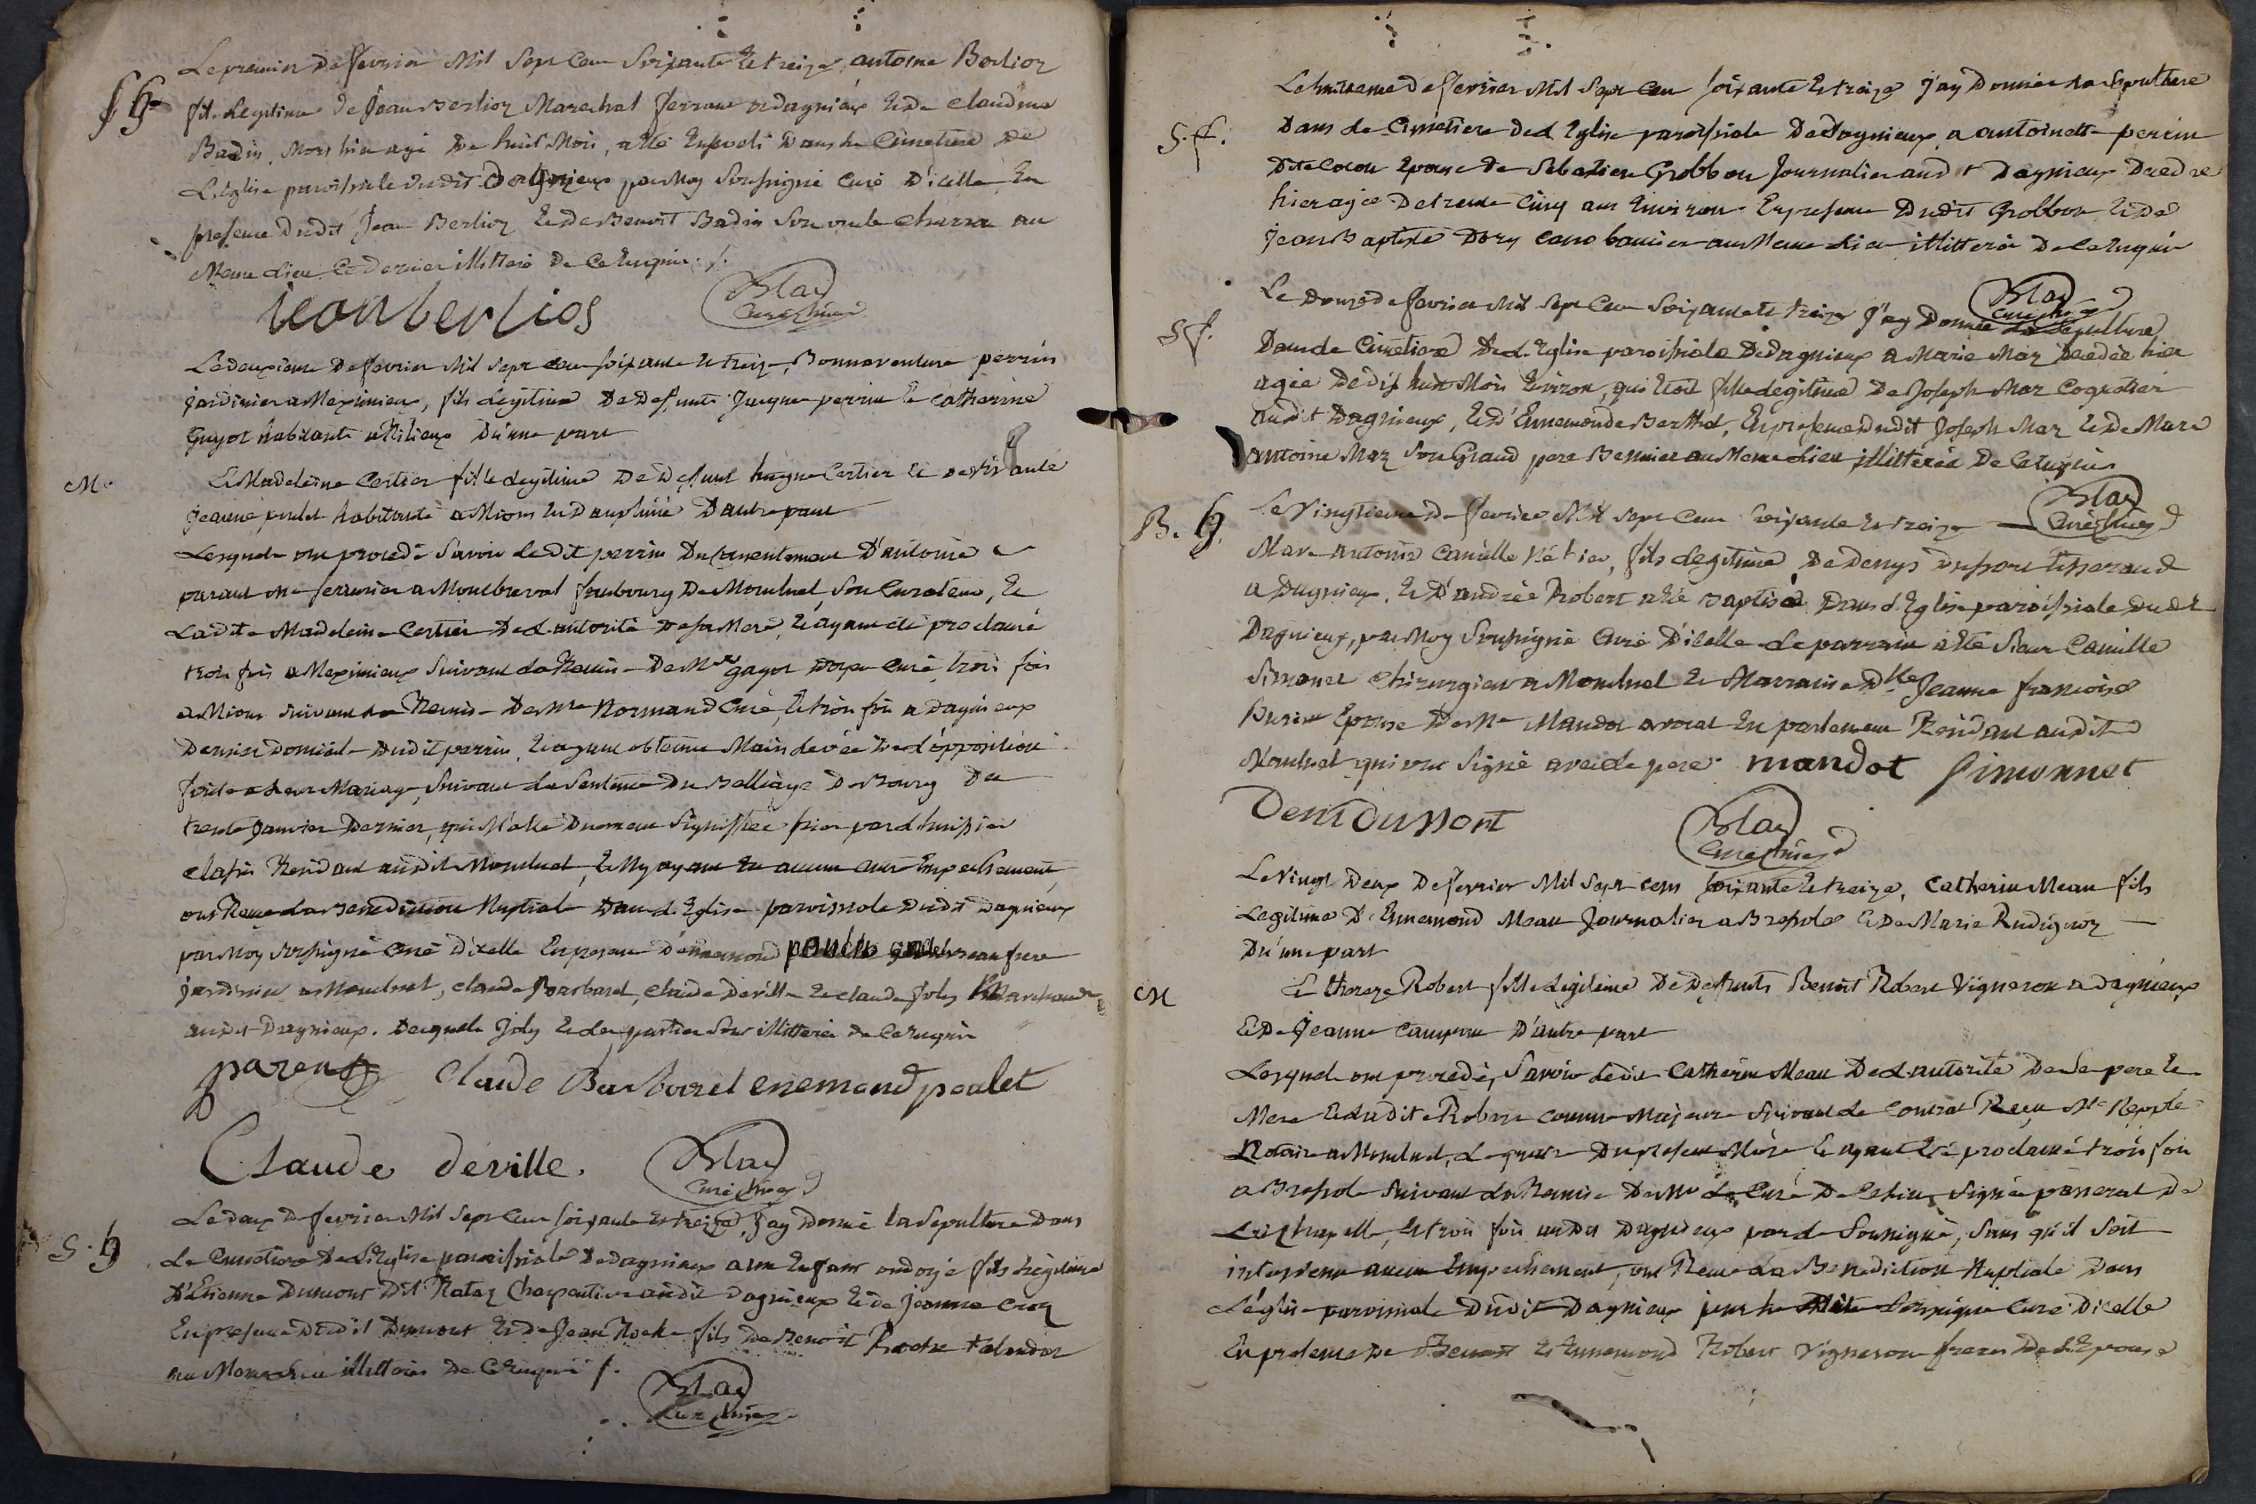 Le premier de fevrier Mil Sept Cens Soixante et treize antoine Berlioz
S. h.
fils Legitime de Jean Berlioz Marechal ferrant a dagnieux et de claudine
Badin, Mort hier agé de huit Mois, a été Enseveli dans le Cimetiere de
L'église paroissiale dudit dagnieux par Moy Soussigné Curé d'icelle En
presence dudit Jean Berlioz et de Benoit Badin Son oncle charron au
Meme Lieu Ce dernier illitteré de Ce Enquis
jean berlios
Blad
Curé
Le deuxieme de fevrier Mil Sept Cens soixante et treize, Bonnaventure perrin
jardinier a Meximieux, fils Legitime de defunts Jacques perrin et catherine
Guyot habitants a d'une part
M.
Et Madeleine Certier fille Legitime de defunt hugue Certier et de vivante
jeanne poulet habitante a Mions En Dauphiné D'autre part
Lesquels ont procedé Savoir Ledit perrin Du Consentement D'antoine
parant Me serrurier a Montbreval fauxbourg De Montluel, Son Curateur, Et
Ladite Madeleine Certier De L'autorité de sa Mere, Et ayant été proclamé
trois fois a Meximieux Suivant la Remise De Mre gayot Curé, trois fois
a Mions suivant la Remise De Mre Normand Curé, Et trois fois a Dagnieux
Dernier Domicile dudit perrin, Et ayant obtenu Main Levée De L'opposition
faite a leur Mariage, Suivant la Sentence Du Balliage De Bourg Du
trente Janvier Dernier, qui M'a été Signiffiée hier par L'huissier
Residant audit Montluel, Et N'y ayant Eu aucun autre Empechement,
ont Reçu La Benediction Nuptiale Dans L'Eglise paroissiale Dudit Dagnieux
par Moy Soussigné Curé D'icelle En presence D'ennemond frere
jardinier a Montluel, claude Barbaret, claude Deville Et claude Joly
audit Dagnieux. Desquels Joly Et Les parties Sont illitterés De Ce Enquis
parent
Claude Barbarel enemond poulet
Claude déville.
Blad
Curé
S. h
Le deux De fevrier Mil Sept Cens Soixante Et treize, J'ay Donné la Sepulture Dans
Le Cimetiere De L'Eglise paroissiale De dagnieux a un Enfant ondoyé fils Légitime
D'Etienne Dumont Dit Natez Charpentier audit Dagnieux Et de Jeanne Croz
En presence Dudit Dumont Et De Jean Roche fils De Benoit Roche
au Meme Lieu illitterés De Ce Enquis
Blad
Curé
Le huitieme De fevrier Mil Sept Cens soixante Et treize J'ay Donnée La Sepulture
S. f.
Dans Le Cimetiere De L'Eglise paroissiale De Dagnieux, a antoinette perrin
Dite Cocon Epouse De Sebastien Grobbon Journalier audt Dagnieux Decedée
hier agée De trente Cinq ans Environ En presence Dudit Grobbon Et De
jean Baptiste Dory au Meme Lieu illitterés De Ce Enquis
Blad
Curé
Le Douze de fevrier Mil Sept Cens Soixante et treize J'ay Donnée La Sepulture
S f.
Dans Le Cimetiere De L'Eglise paroissiale De Dagnieux a Marie Maz Decedée hier
agée De dix huit Mois Environ, qui Etoit fille Legitime De Joseph Maz Coquetier
audit Dagnieux, Et D'Ennemonde Berthet, En presence Dudit Joseph Maz Et De Marc
antoine Maz Son Grand pere au Meme Lieu illitterés De Ce Enquis
Blad
Curé
B. h.
Le Vingtieme De fevrier Mil Sept Cens Soixante Et treize
Marc antoine Camille né hier, fils Legitime De Denys Tisserand
a Dagnieux, Et D'andrée Robert a été Baptisé Dans L'Eglise paroissiale Dudt
Dagnieux, par Moy Soussigné Curé D'icelle Le parrain a été Sieur Camille
Simonet chirurgien a Montluel Et Marraine Dlle Jeanne francoise
Epouse De Mre Mandot avocat En parlement Residant audit
Montluel qui ont Signé avec le pere. mandot Simonnet
Denidupont
Blad
Curé
Le vingt Deux De fevrier Mil Sept cens soixante Et treize, Catherin Meau fils
Legitime D'Ennemond Meau Journalier a Bressole Et De Marie Rudigoz
D'une part
M
Et thereze Robert fille Légitime De Defunts Benoit Robert Vigneron a Dagnieux
Et De Jeanne D'autre part
Lesquels ont procedé, Savoir Ledit Catherin Meau De L'autorité De Ses pere Et
Mere Et Ladite Robert comme Majeure Suivant Le Contrat Reçu Me
Notaire a Montluel, Le Du présent Mois Et ayant Eté proclamé trois fois
a Bressole Suivant La Remise De Mre Le Curé Signée De
La Chapelle, Et trois fois audit Dagnieux par Le Soussigné, Sans qu'il Soit
intervenu aucun Empechement, ont Reçu La Benediction Nuptiale Dans
L'église paroissiale Dudit Dagnieux Soussigné Curé D'icelle
En presence De Benoit Et Ennemond Robert Vignerons freres De L'Epouse